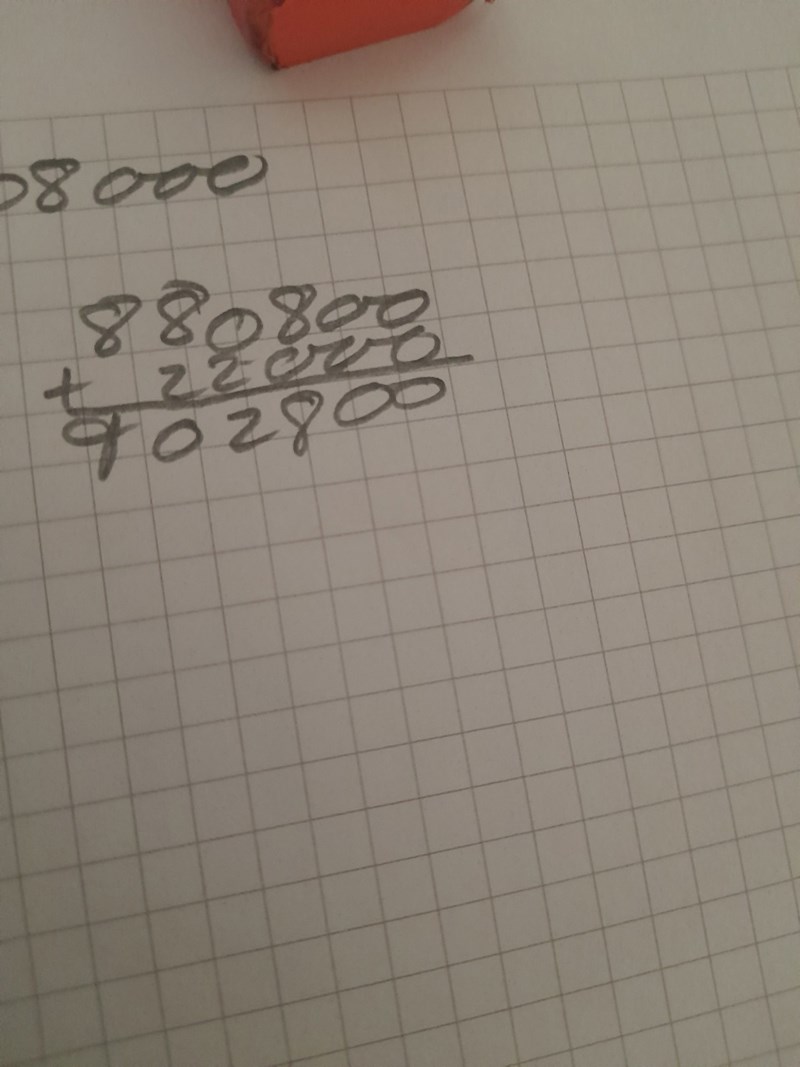 08000
880800
+ 22000
902800